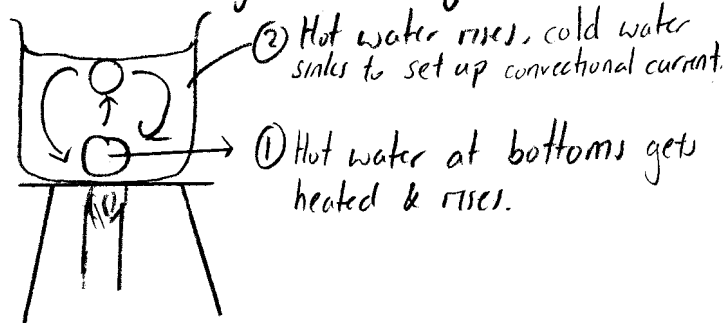 ② Hot water rises, cold water
sinks to set up convectional current.
① Hot water at bottoms gets
heated & rises.